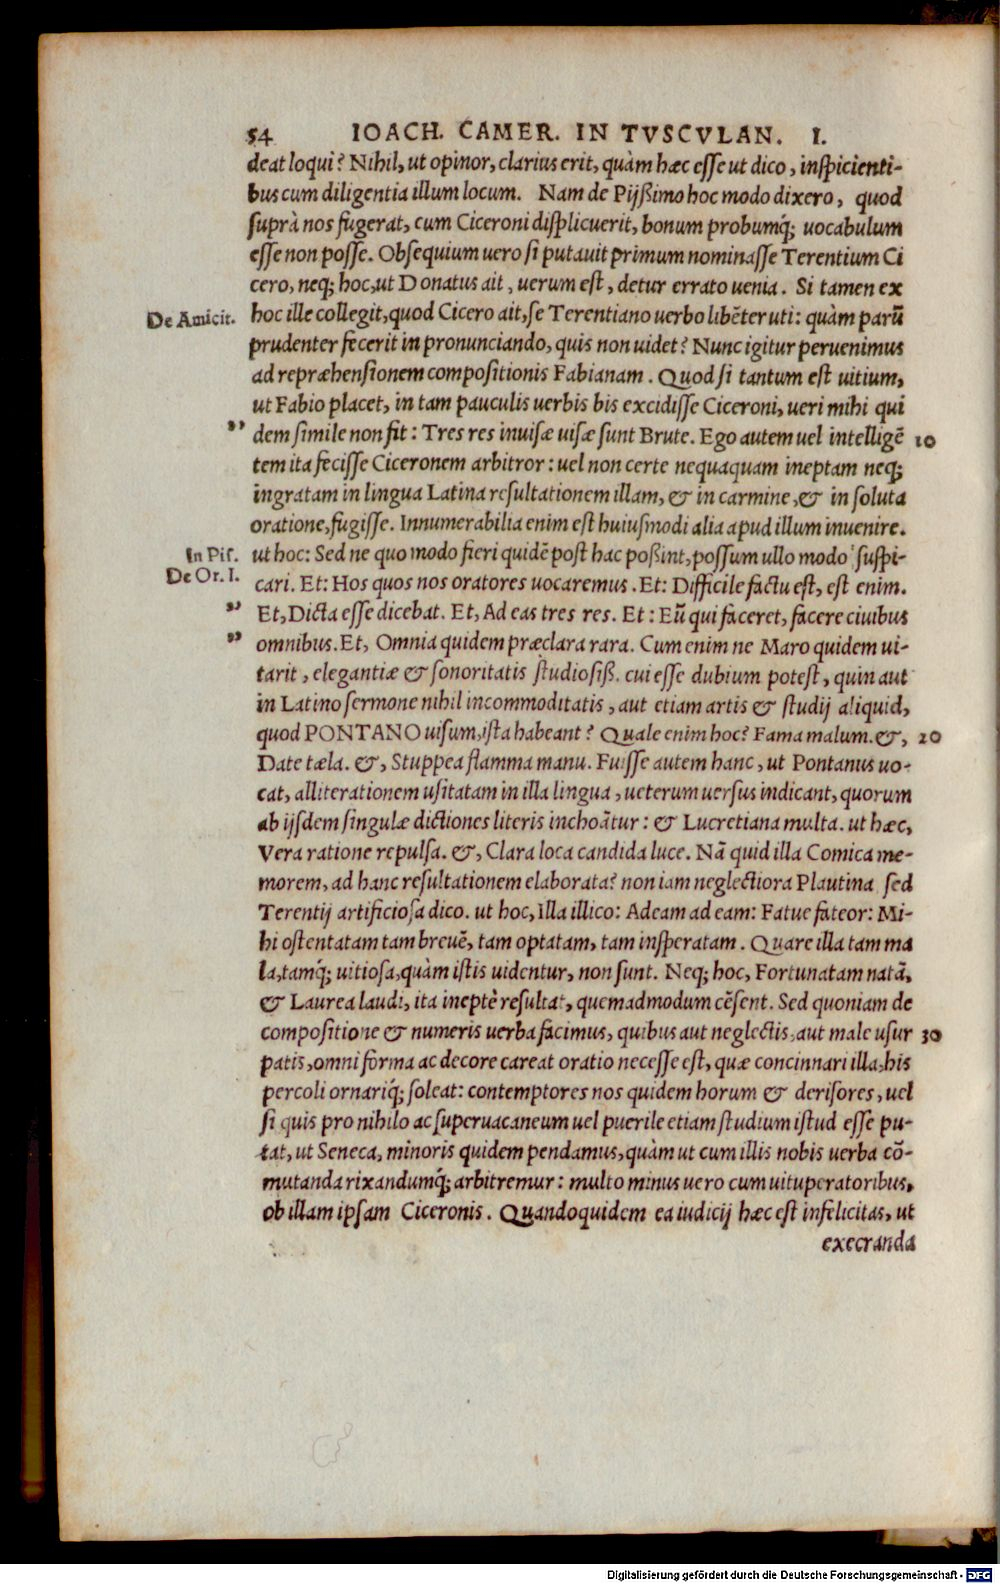 54 IOACH. CAMER. IN TVSCVLAN. I.
deat loqui? Nihil, ut opinor, clarius erit, quàm hæc esse ut dico, inspicienti-
bus cum diligentia illum locum. Nam de Pijßimo hoc modo dixero, quod
suprà nos fugerat, cum Ciceroni displicuerit, bonum probumq́; uocabulum
esse non posse. Obsequium uero si putauit primum nominasse Terentium Ci
cero, neq; hoc, ut Donatus ait, uerum est, detur errato uenia. Si tamen ex
De Amicit. hoc ille collegit, quod Cicero ait, se Terentiano uerbo libēter uti: quàm parū
prudenter fecerit in pronunciando, quis non uidet? Nunc igitur peruenimus
ad repræhensionem compositionis Fabianam. Quod si tantum est uitium,
ut Fabio placet, in tam pauculis uerbis bis excidisse Ciceroni, ueri mihi qui
„ dem simile non fit: Tres res inuisæ uisæ sunt Brute. Ego autem uel intelligē 10
tem ita fecisse Ciceronem arbitror: uel non certe nequaquam ineptam neq;
ingratam in lingua Latina resultationem illam, & in carmine, & in soluta
oratione, fugisse. Innumerabilia enim est huiusmodi alia apud illum inuenire.
In Pis. ut hoc: Sed ne quo modo fieri quidē post hac poßint, possum ullo modo suspi-
De Or. I. cari. Et: Hos quos nos oratores uocaremus. Et: Difficile factu est, est enim.
„ Et, Dicta esse dicebat. Et, Ad eas tres res. Et: Eū qui faceret, facere ciuibus
„ omnibus. Et, Omnia quidem præclara rara. Cum enim ne Maro quidem ui-
tarit, elegantiæ & sonoritatis studiosiß. cui esse dubium potest, quin aut
in Latino sermone nihil incommoditatis, aut etiam artis & studij aliquid,
quod PONTANO uisum, ista habeant? Quale enim hoc? Fama malum. &, 20
Date tæla. &, Stuppea flamma manu. Fuisse autem hanc, ut Pontanus uo-
cat, alliterationem usitatam in illa lingua, ueterum uersus indicant, quorum
ab ijsdem singulæ dictiones literis inchoātur: & Lucretiana multa. ut hæc,
Vera ratione repulsa. &, Clara loca candida luce. Nā quid illa Comica me-
morem, ad hanc resultationem elaborata? non iam neglectiora Plautina sed
Terentij artificiosa dico. ut hoc, Illa illico: Adeam ad eam: Fatue fateor: Mi-
hi ostentatam tam breuē, tam optatam, tam insperatam. Quare illa tam ma
la, tamq́; uitiosa, quàm istis uidentur, non sunt. Neq; hoc, Fortunatam natā,
& Laurea laudi, ita ineptè resultat, quemadmodum cēsent. Sed quoniam de
compositione & numeris uerba facimus, quibus aut neglectis, aut male usur 30
patis, omni forma ac decore careat oratio necesse est, quæ concinnari illa, his
percoli ornariq́; soleat: contemptores nos quidem horum & derisores, uel
si quis pro nihilo ac superuacaneum uel puerile etiam studium istud esse pu-
tat, ut Seneca, minoris quidem pendamus, quàm ut cum illis nobis uerba cō-
mutanda rixandumq́; arbitremur: multo minus uero cum uituperatoribus,
ob illam ipsam Ciceronis. Quandoquidem ea iudicij hæc est infelicitas, ut
execranda
Digitalisierung gefördert durch die Deutsche Forschungsgemeinschaft - DFG